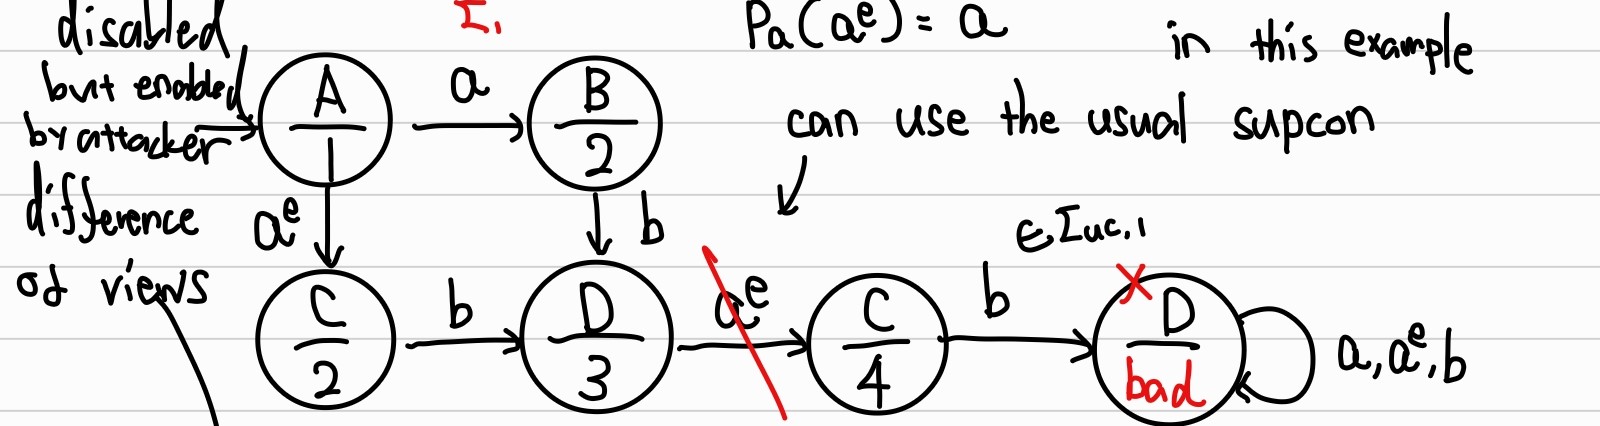 disabled
but enabled
by attacker
difference
of views
Σ₁
Pₐ(aᵉ) = a
in this example
can use the usual supcon
A
1
a
B
2
aᵉ
b
∈Σuc,1
C
2
b
D
3
aᵉ
C
4
b
D
bad
a, aᵉ, b